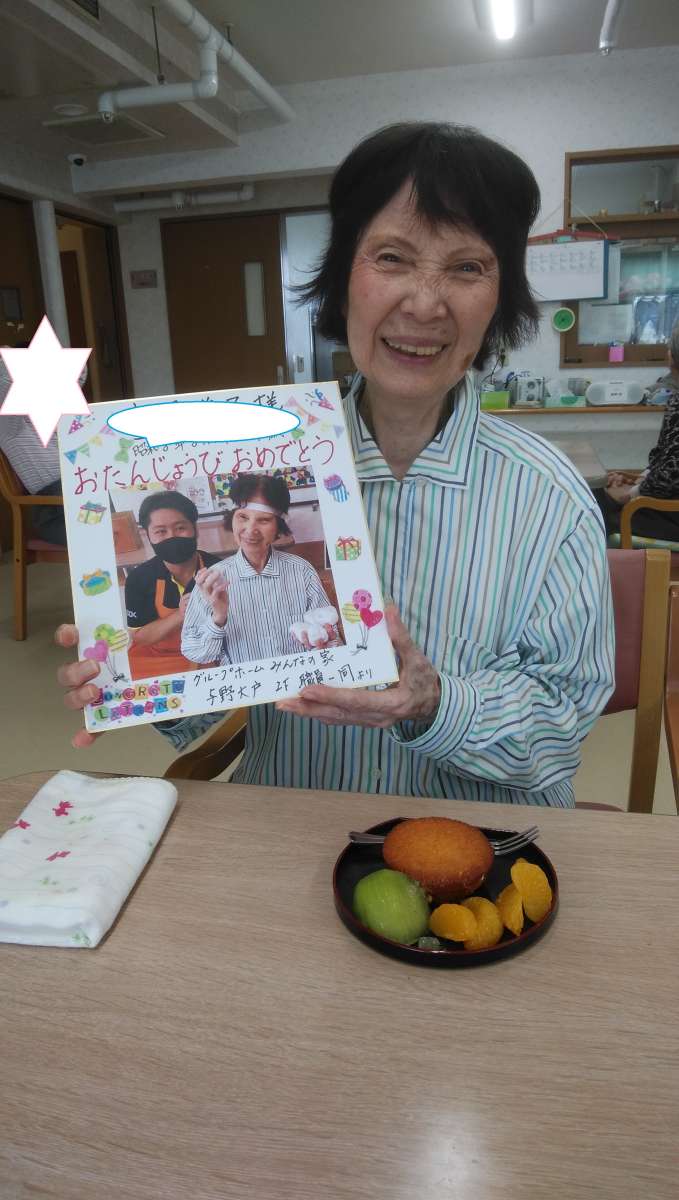 様
おたんじょうび おめでとう
グループホーム みんなの家
与野大戸 2F 職員一同より
CONGRATU
LATIONS